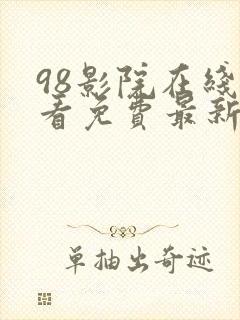 98影院在线
看免费最新
单抽出奇迹